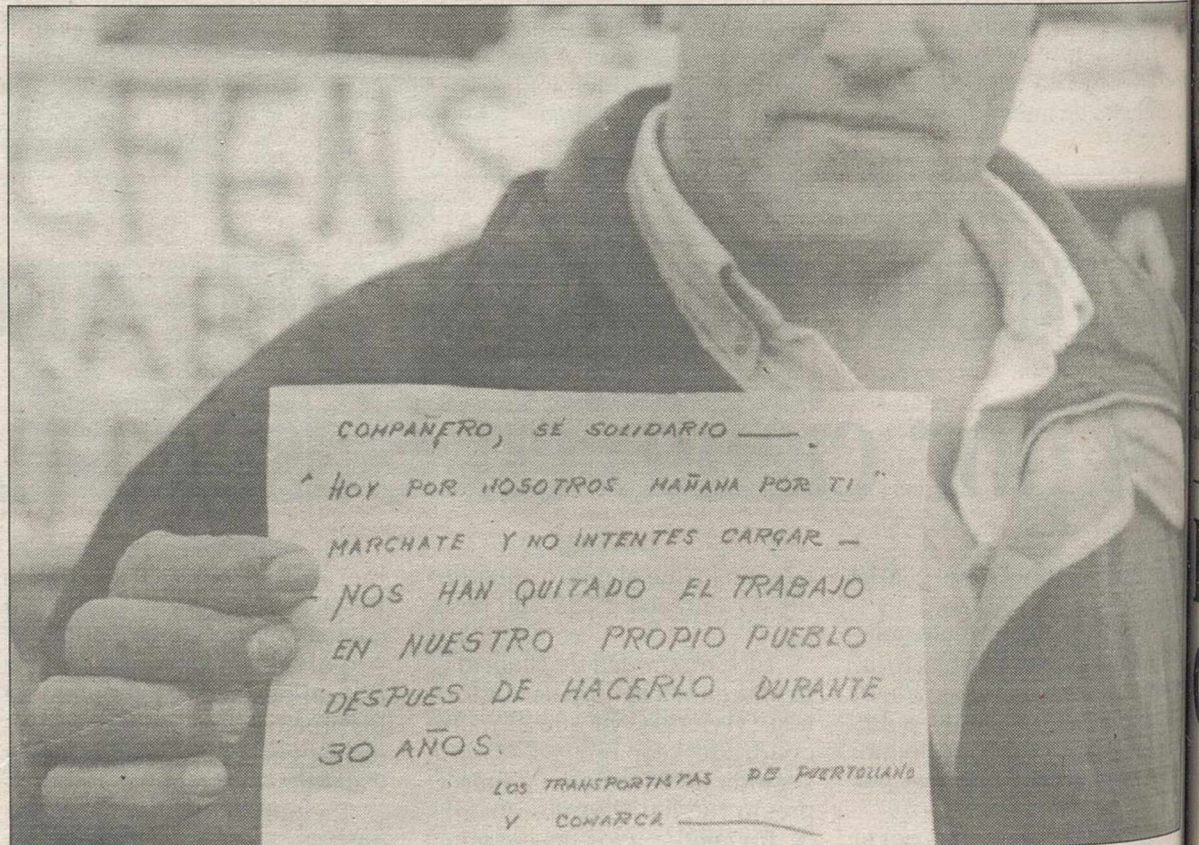 COMPAÑERO, SÉ SOLIDARIO —.
"HOY POR NOSOTROS MAÑANA POR TI"
MARCHATE Y NO INTENTES CARGAR —
NOS HAN QUITADO EL TRABAJO
EN NUESTRO PROPIO PUEBLO
DESPUES DE HACERLO DURANTE
30 AÑOS.
LOS TRANSPORTISTAS DE PUERTOLLANO
Y COMARCA —